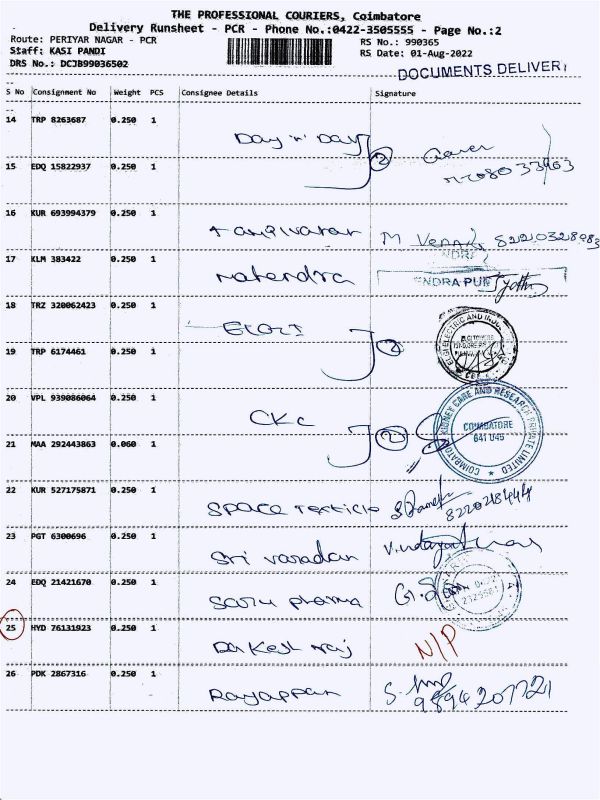 THE PROFESSIONAL COURIERS, Coimbatore
Delivery Runsheet - PCR - Phone No.:0422-3505555 - Page No.:2
Route: PERIYAR NAGAR - PCR RS No.: 990365
Staff: KASI PANDI RS Date: 01-Aug-2022
DRS No.: DCJB99036502
DOCUMENTS DELIVER
S No Consignment No Weight PCS Consignee Details Signature
14 TRP 8263687 0.250 1 Day 'n' Day 2
15 EDQ 15822937 0.250 1
16 KUR 693994379 0.250 1 M
17 KLM 383422 0.250 1 Mahendra NDRA PUR Jyothi
18 TRZ 320062423 0.250 1 2
ELGI ELECTRIC AND
19 TRP 6174461 0.250 1
20 VPL 939086064 0.250 1 CKC 2
KIDNEY CARE AND RESEARCH PRIVATE LIMITED COIMBATORE
COIMBATORE
641 045
21 MAA 292443863 0.060 1
22 KUR 527175871 0.250 1 Space
23 PGT 6300696 0.250 1 Sri varadan
24 EDQ 21421670 0.250 1 pharma
25 HYD 76131923 0.250 1 N/P
26 PDK 2867316 0.250 1 Rayappan